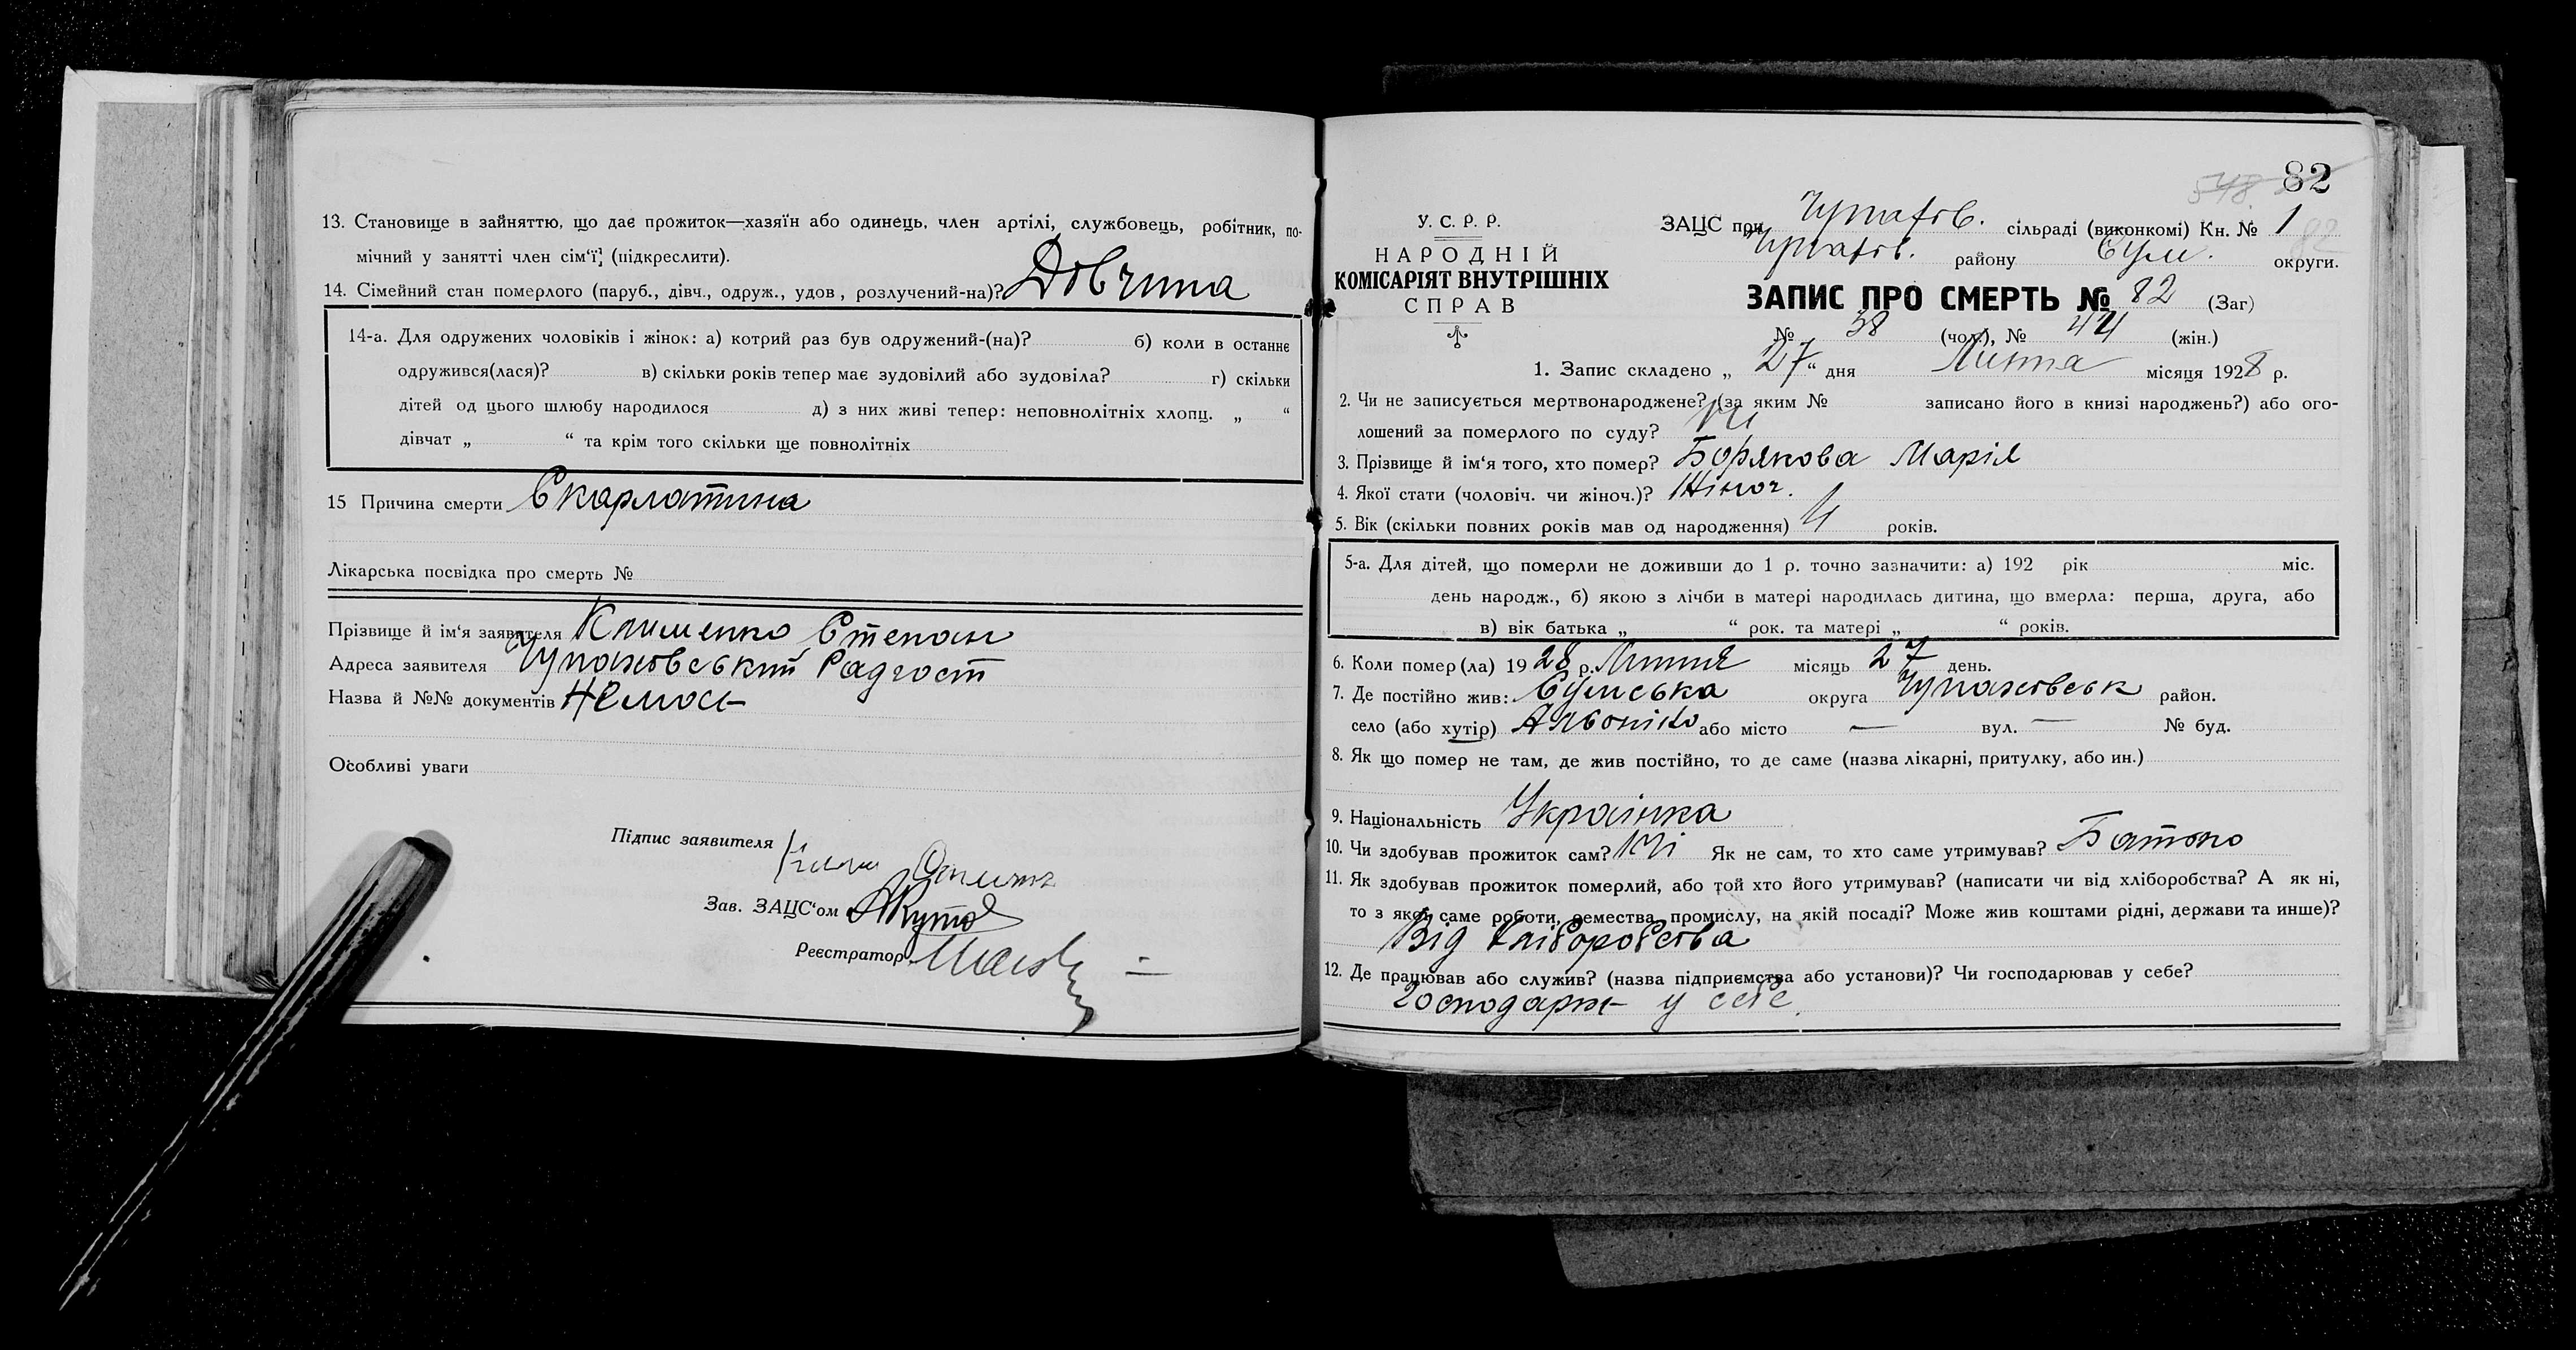 13. Становище в зайняттю, що дає прожиток—хазяїн або одинець, член артілі, службовець, робітник, по-
мічний у занятті член сім‘ї (підкреслити).
14. Сімейний стан померлого (паруб., дівч., одруж., удов, розлучений-на)? Дівчина
14-а. Для одружених чоловіків і жінок: а) котрий раз був одружений-(на)? б) коли в останнє
одружився(лася)? в) скільки років тепер має зудовілий або зудовіла? г) скільки
дітей од цього шлюбу народилося д) з них живі тепер: неповнолітніх хлопц. „ “
дівчат „ “ та крім того скільки ще повнолітніх
15 Причина смерти Скарлатина
Лікарська посвідка про смерть №
Прізвище й ім‘я заявителя Клименко Степан
Адреса заявителя Чупахівський Радгосп
Назва й №№ документів Немає
Особливі уваги
Підпис заявителя
Зав. ЗАЦС‘ом
Реєстратор
82
548.
У. С. Р. Р.
НАРОДНІЙ
КОМІСАРІЯТ ВНУТРІШНІХ
СПРАВ
ЗАЦС при Чупахів. сільраді (виконкомі) Кн. № 1
82
Чупахів. району Сум. округи.
ЗАПИС ПРО СМЕРТЬ № 82 (Заг)
№ 38 (чол.), № 44 (жін.)
1. Запис складено „ 27 “ дня Липня місяця 1928 р.
2. Чи не записується мертвонароджене? (за яким № записано його в книзі народжень?) або ого-
лошений за померлого по суду? Ні
3. Прізвище й ім‘я того, хто помер? Борякова Марія
4. Якої стати (чоловіч. чи жіноч.)? Жіноч.
5. Вік (скільки повних років мав од народження) 4 років.
5-а. Для дітей, що померли не доживши до 1 р. точно зазначити: а) 192 рік міс.
день народж., б) якою з лічби в матері народилась дитина, що вмерла: перша, друга, або
в) вік батька „ “ рок. та матері „ “ років.
6. Коли помер(ла) 1928 р. Липня місяць 27 день.
7. Де постійно жив: Сумська округа Чупахівськ район.
село (або хутір) або місто — вул. — № буд.
8. Як що помер не там, де жив постійно, то де саме (назва лікарні, притулку, або ин.)
9. Національність Українка
10. Чи здобував прожиток сам? Ні Як не сам, то хто саме утримував? Батько
11. Як здобував прожиток померлий, або той хто його утримував? (написати чи від хліборобства? А як ні,
то з якої саме роботи, ремества, промислу, на якій посаді? Може жив коштами рідні, держави та инше)?
Від хліборобства
12. Де працював або служив? (назва підприємства або установи)? Чи господарював у себе?
Господарює у себе.